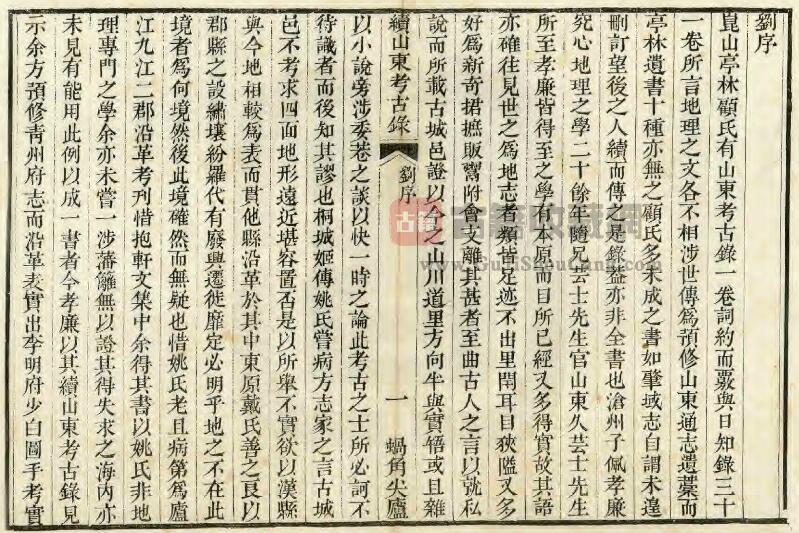 劉序
崑山亭林顧氏有山東考古錄一卷詞約而覈與日知錄三十
一卷所言地理之文各不相涉世傳為預修山東通志遺藁而
亭林遺書十種亦無之顧氏多未成之書如肇域志自謂未遑
刪訂望後之人續而傳之是錄益亦非全書也滄州子佩孝廉
究心地理之學二十餘年隨兄芸士先生官山東久芸士先生
所至孝廉皆得至之學有本原而目所已經又多得實故其語
亦確往見世之為地志者類皆足迹不出里閈耳目狹隘又多
好為新奇捃摭販鬻附會支離其甚者至曲古人之言以就私
說而所載古城邑證以今之山川道里方向半與實牾或且雜
續山東考古錄
劉序
一
蝸角尖廬
以小說旁涉委巷之談以快一時之論此考古之士所必訶不
待識者而後知其謬也桐城姬傳姚氏嘗病方志家之言古城
邑不考求四面地形遠近堪容置否是以所舉不實欲以漢縣
與今地相較為表而貫他縣沿革於其中東原戴氏善之良以
郡縣之設繡壤紛羅代有廢興遷徙靡定必明乎地之不在此
境者為何境然後此境確然而無疑也惜姚氏老且病第為廬
江九江二郡沿革考刊惜抱軒文集中余得其書以姚氏非地
理專門之學余亦未嘗一涉藩籬無以證其得失求之海內亦
未見有能用此例以成一書者今孝廉以其續山東考古錄見
示余方預修青州府志而沿革表實出李明府少白圖手考實
古籍
www.GuJiShouCang.com